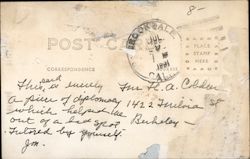 8-
BROOKDALE
JUL
CAL.
POST CARD
CORRESPONDENCE
PLACE
STAMP
HERE
This card is merely
a piece of diplomacy
which helped me
out of a bad spot
by yourself
Jm.
Mr. H. A. Colden
1422 St
Berkeley -